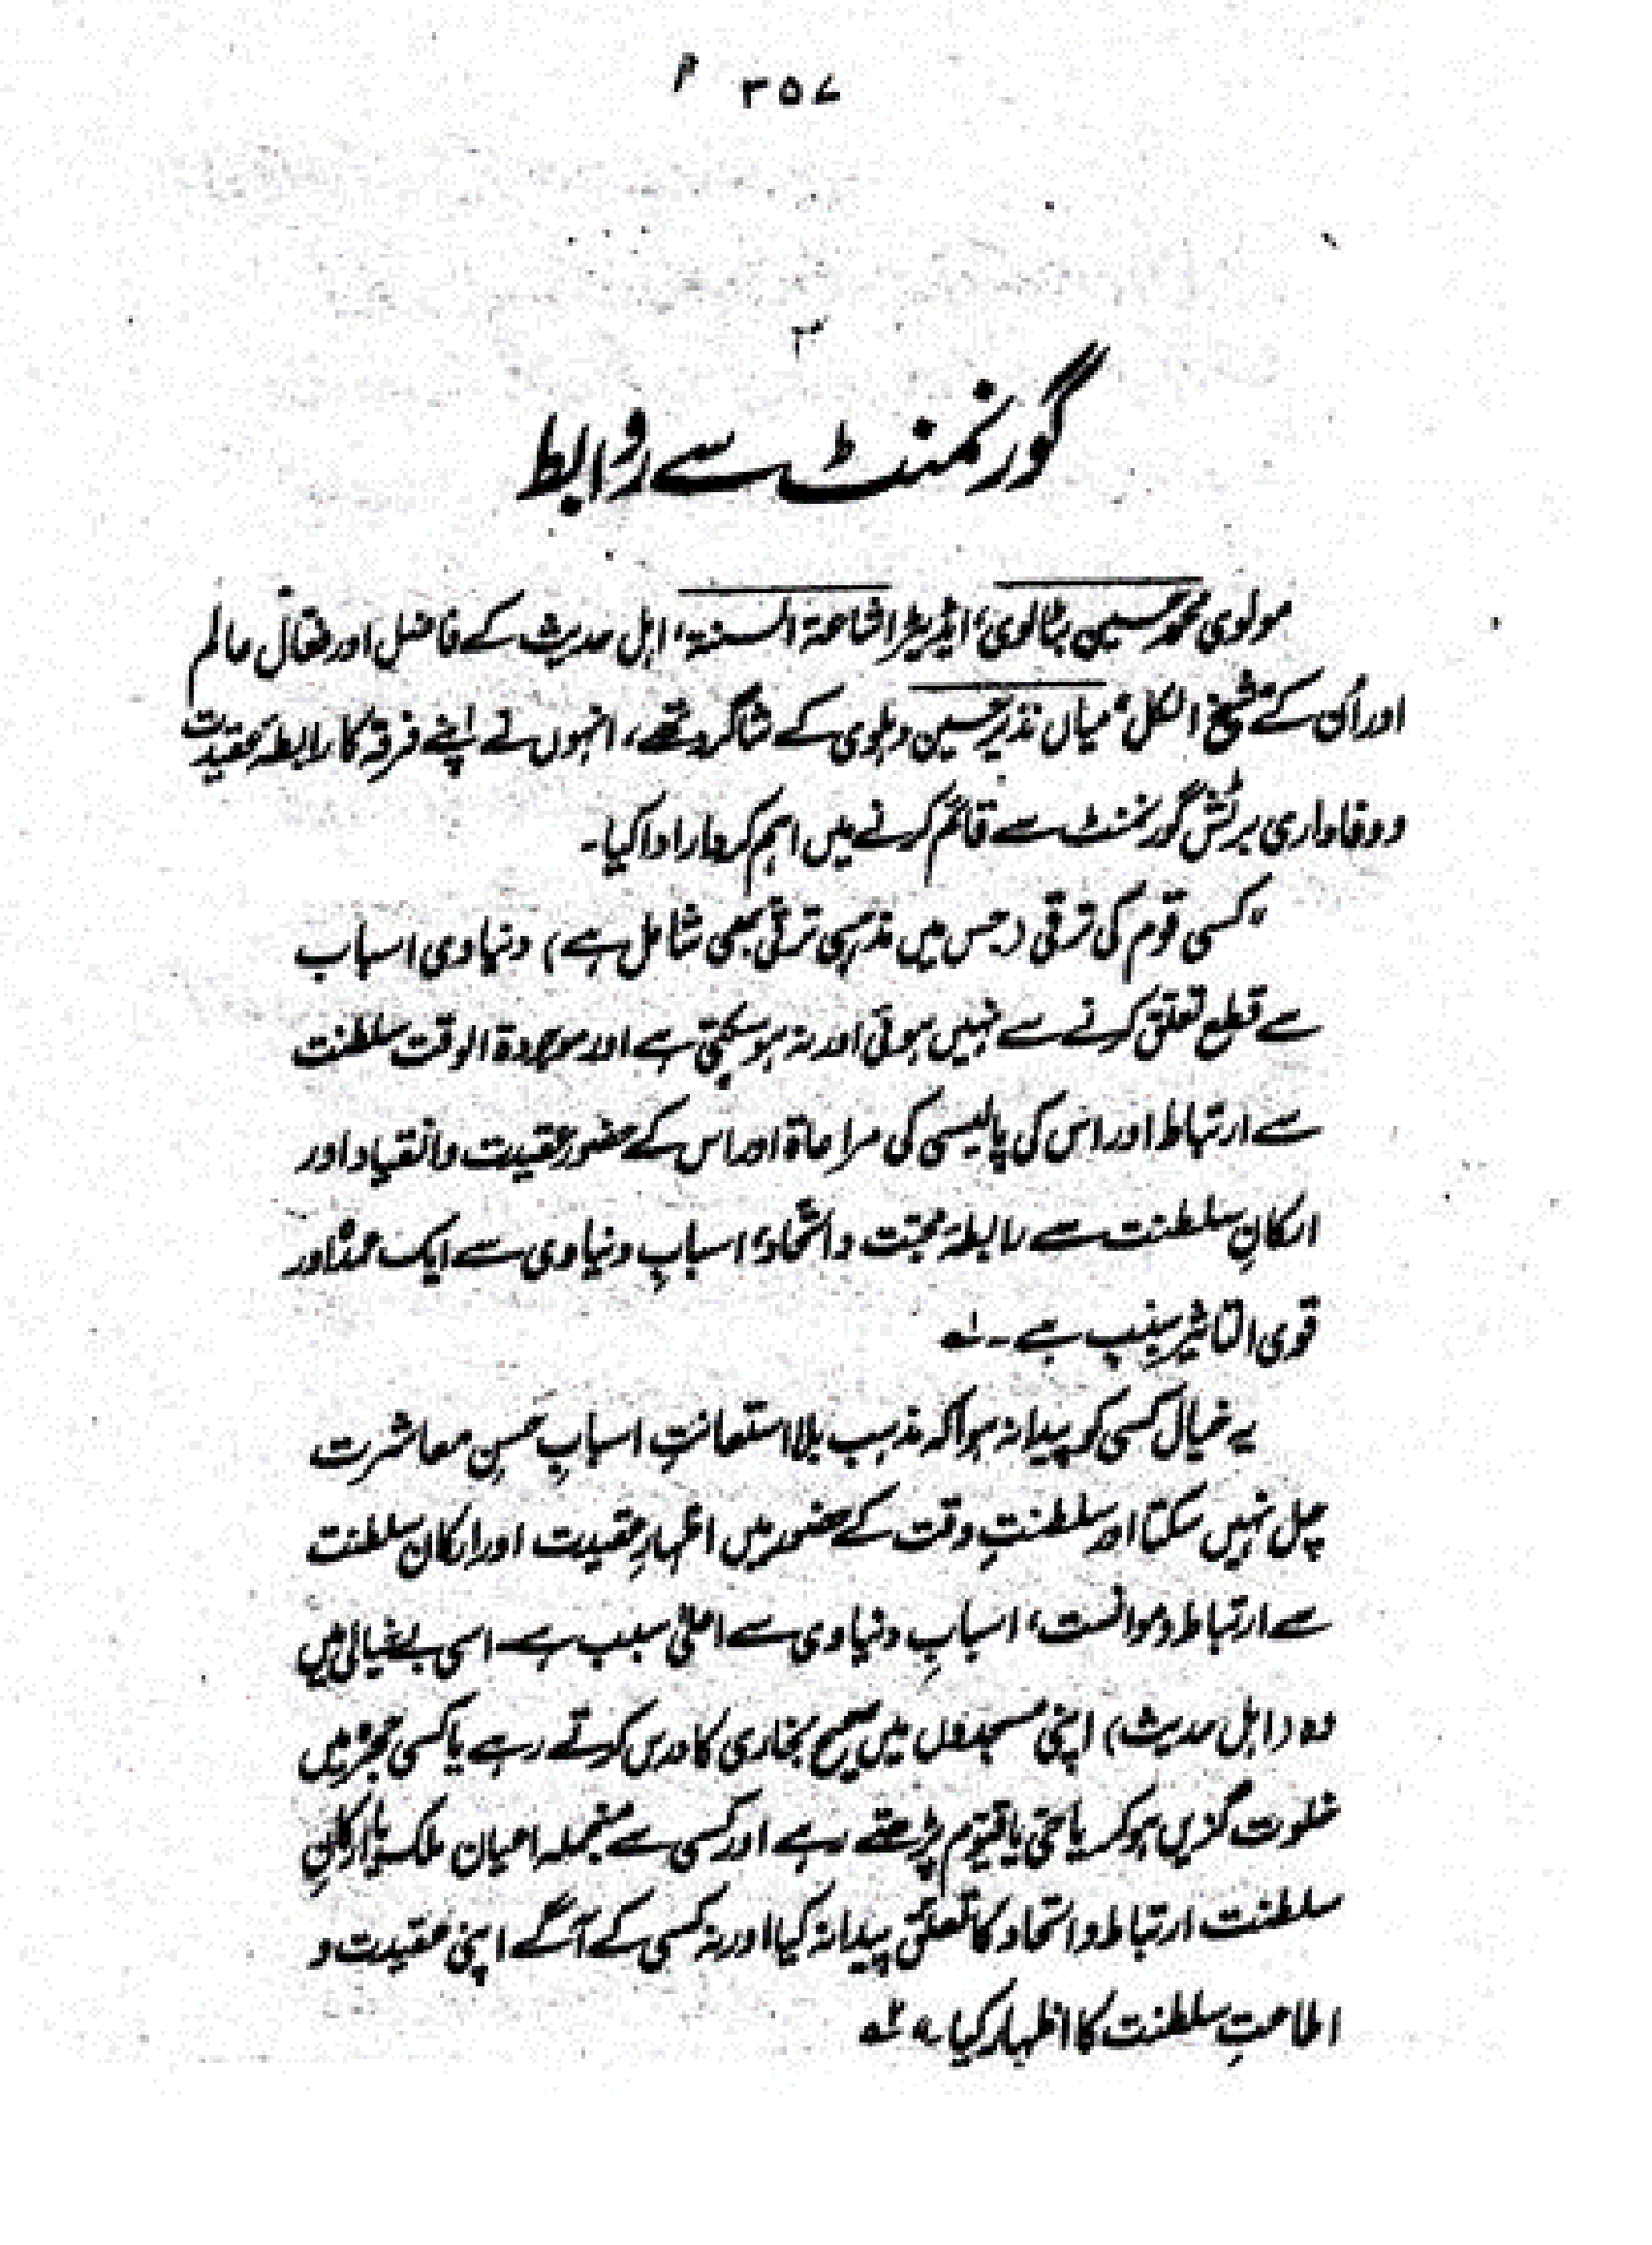 م ۳۵۷
۳
گورنمنٹ سے روابط
مولوی محمد حسین بٹالوی، ایڈیٹر اشاعۃ السنۃ، اہل حدیث کے فاضل اور فعال عالم
اور اُن کے شیخ الکل میاں نذیر حسین دہلوی کے شاگرد تھے، انہوں نے اپنے فرقہ کا رابطۂ عقیدت
و وفاداری برٹش گورنمنٹ سے قائم کرنے میں اہم کردار ادا کیا۔
"کسی قوم کی ترقی (جس میں مذہبی ترقی بھی شامل ہے) دنیاوی اسباب
سے قطع تعلق کرنے سے نہیں ہوئی اور نہ ہو سکتی ہے اور موجودۃ الوقت سلطنت
سے ارتباط اور اس کی پالیسی کی مراعاۃ اور اس کے حضور عقیدت و انقیاد اور
ارکانِ سلطنت سے رابطۂ محبت و اتحاد، اسبابِ دنیاوی سے ایک عمدہ اور
قوی التاثیر سبب ہے۔ ۱ـہ
یہ خیال کسی کو پیدا نہ ہوا کہ مذہب بلا استعانتِ اسبابِ حُسنِ معاشرت
چل نہیں سکتا اور سلطنتِ وقت کے حضور میں اظہارِ عقیدت اور ارکانِ سلطنت
سے ارتباط و موانست، اسبابِ دنیاوی سے اعلیٰ سبب ہے۔ اسی بے خیالی میں
وہ (اہل حدیث) اپنی مسجدوں میں صحیح بخاری کا درس کرتے رہے یا کسی حجرہ میں
خلوت گزیں ہو کر یا حیّ یا قیوم پڑھتے رہے اور کسی سے منجملہ اعیان ملک یا ارکانِ
سلطنت ارتباط و اتحاد کا تعلق پیدا نہ کیا اور نہ کسی کے آگے اپنی عقیدت و
اطاعتِ سلطنت کا اظہار کیا۔" ۲ـہ